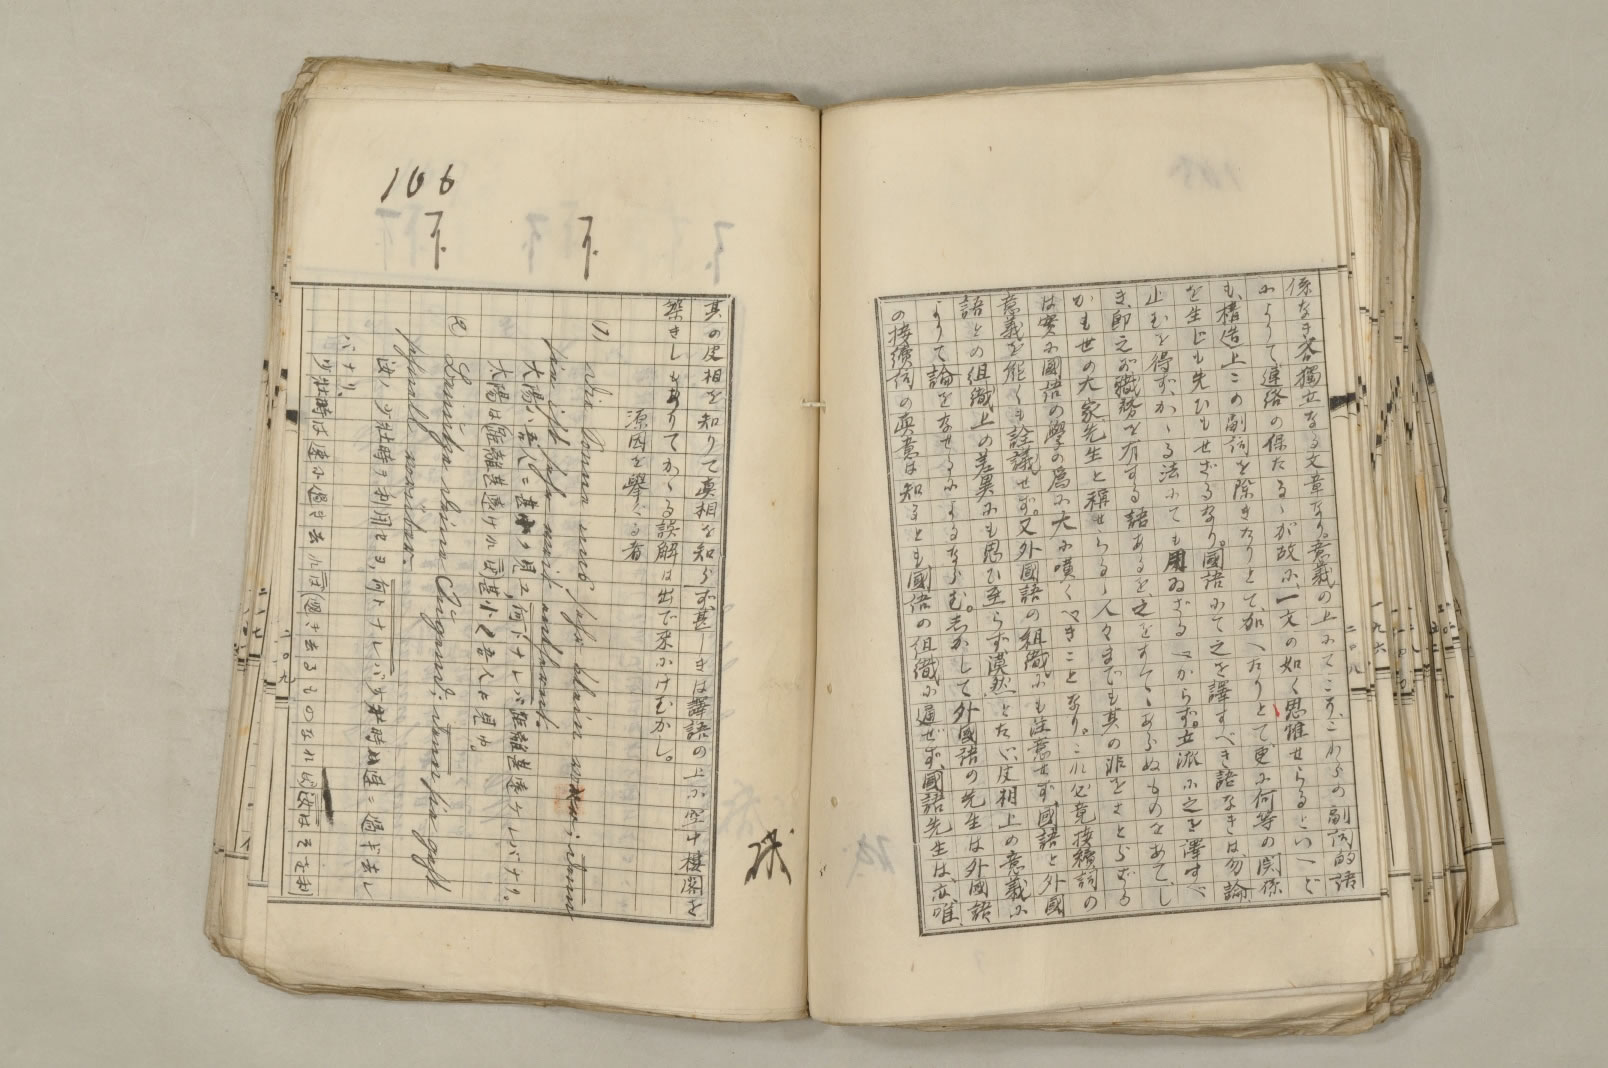 係なき各獨立なる文章なり。意義の上にてこそ、これらの副詞的語
によりて連絡の保たるゝが故に、一文の如く思惟せらるといへど
も、構造上この副詞を除きたりとて、加へたりとて更に何等の関係
を生じも失ひもせざるなり。國語にて之を譯すべき語なきは勿論
止むを得ず、かゝる法にても用ゐざるべからず。立派に之を譯すべ
き、即之が職務を有する語あるを、之をすてゝあらぬものをあてし
かも世の大家先生と稱せらるゝ人々までも其の非をさとらざる
は實に國語の學の爲に大に嘆くべきことなり。これ必竟接續詞の
意義を能くも詮議せず。又外國語の組織にも注意せず國語と外國
語との組織上の差異にも思ひ至らず漠然とたゞ皮相上の意義に
よりて論をなせるによるならむ。しかして外國語の先生は外國語
の接續詞の真意は知るとも國語の組織に通ぜず、國語先生は、亦唯
其の皮相を知りて真相を知らず甚しきは譯語の上に空中樓閣を
築きしもありてかゝる誤解は出で來にけむかし。
源因を擧ぐる者
(1) Die Sonne uns sehr klein ; denn
sie ist sehr weit entfernt.
太陽ハ吾人ニ甚小ク見ユ、何トナレバ距離甚遠ケレバナリ。
太陽は距離甚遠ければ甚小く吾人に見ゆ。
Benütze deine Jugend; denn sie geht
schnell vorüber.
汝ノ少壯時ヲ利用セヨ、何トナレバ少壯時ハ迅ニ過ギ去レ
バナリ。
少壯時は速に過ぎ去れば(過ぎ去るものなれば)汝は
106
下
下
二〇八
二〇九